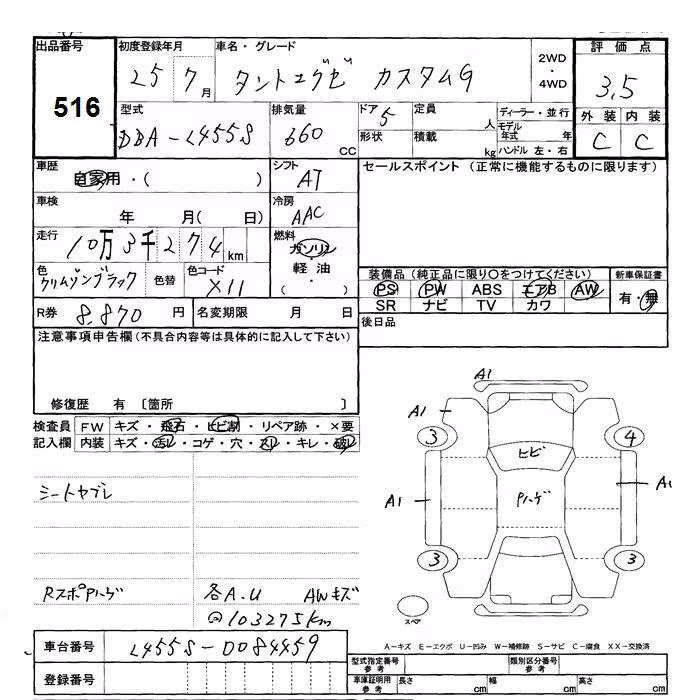 出品番号 初度登録年月 車名・グレード 評価点
516
25 7月 タントエグゼ カスタムG 2WD・4WD 3.5
型式 排気量 ドア 定員 ディーラー・並行 外装 内装
DBA-L455S 660 CC 5 人 モデル年式 年 C C
形状 積載 kg ハンドル 左・右
車歴 シフト セールスポイント (正常に機能するものに限ります)
自家用・( ) AT
車検 冷房
年 月( 日) AAC
走行 燃料
10万3千274km ガソリン・軽油・( )
色 色替 色コード 装備品(純正品に限り○をつけてください) 新車保証書
クリムゾンブラック X11 PS PW ABS エアB AW 有・無
SR ナビ TV カワ
R券 8,870 円 名変期限 月 日 後日品
注意事項申告欄(不具合内容等は具体的に記入して下さい)
修復歴 有 〔箇所 〕
検査員記入欄 FW キズ・飛石・ヒビ割・リペア跡・×要
内装 キズ・汚レ・コゲ・穴・スレ・キレ・破レ
シートヤブレ
Rスポハゲ 各A.U AWキズ
@103275km
A1
A1
3 4
ヒビ
A1 Pハゲ A1
3 3
スペア
A-キズ E-エクボ U-凹み W-補修跡 S-サビ C-腐食 XX-交換済
車台番号 L455S-0084459
型式指定番号 参考 類別区分番号 参考
登録番号 車庫証明用 参考 長さ cm 幅 cm 高さ cm